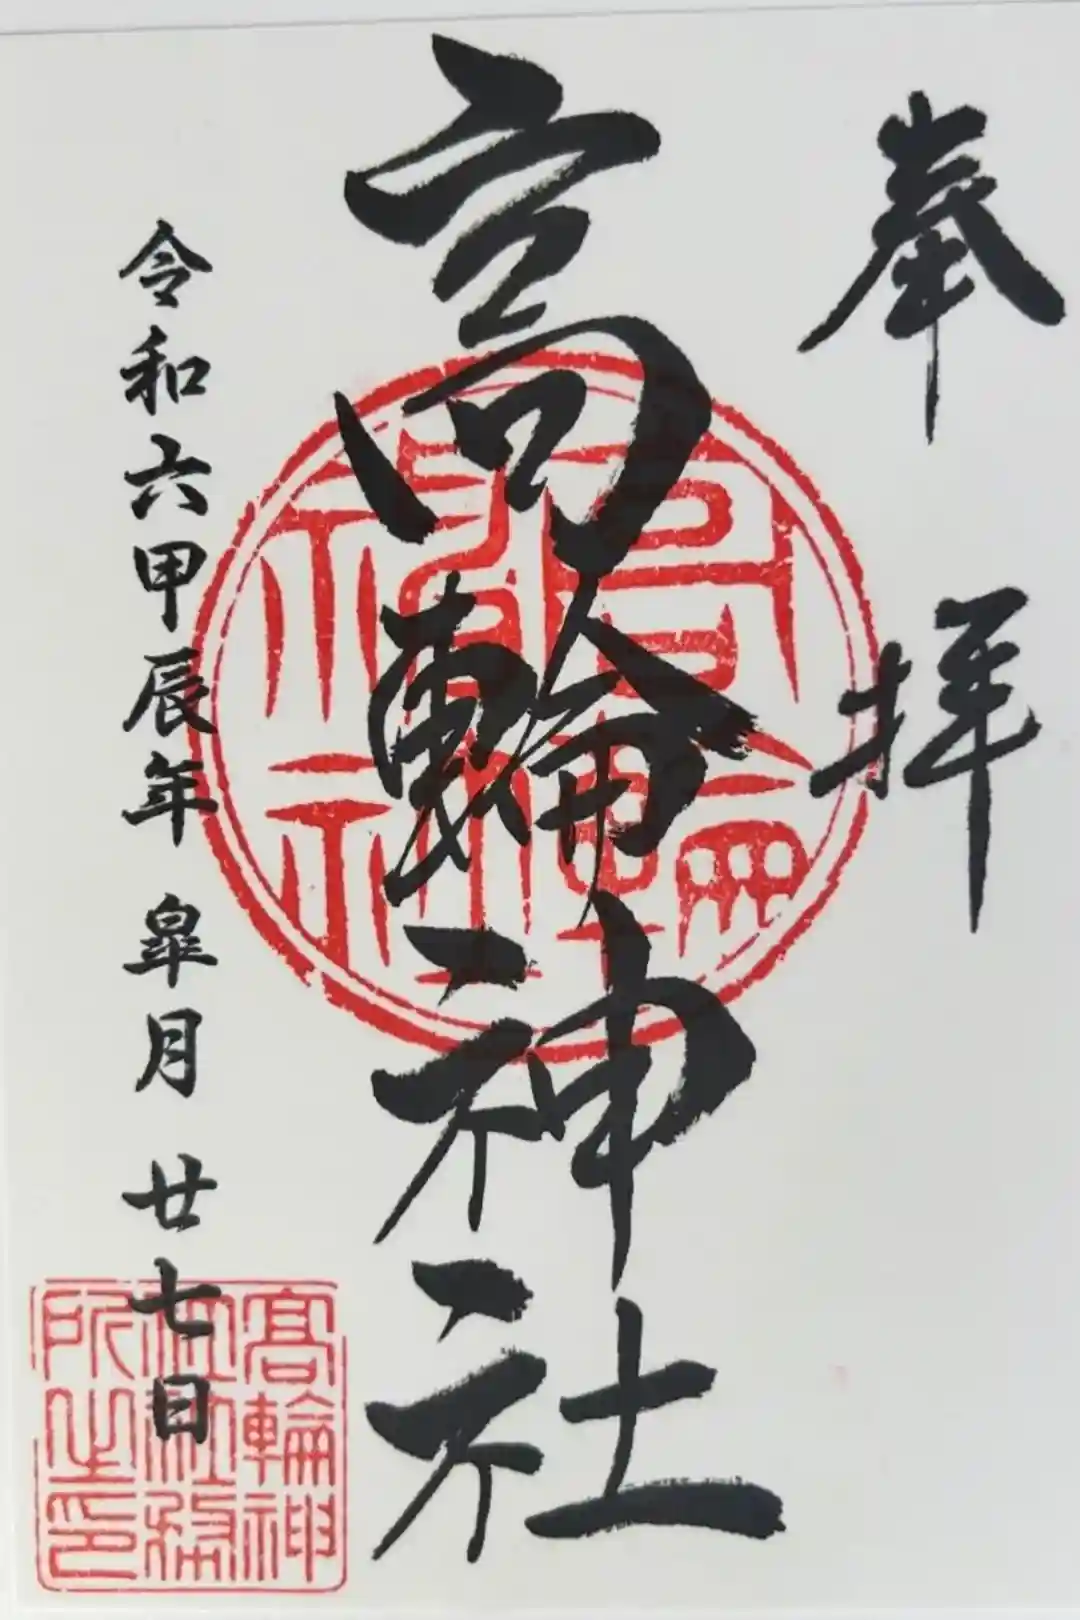 奉拝
高輪神社
令和六甲辰年 皐月 廿七日
高輪神
社社務
所之印
高輪
神社